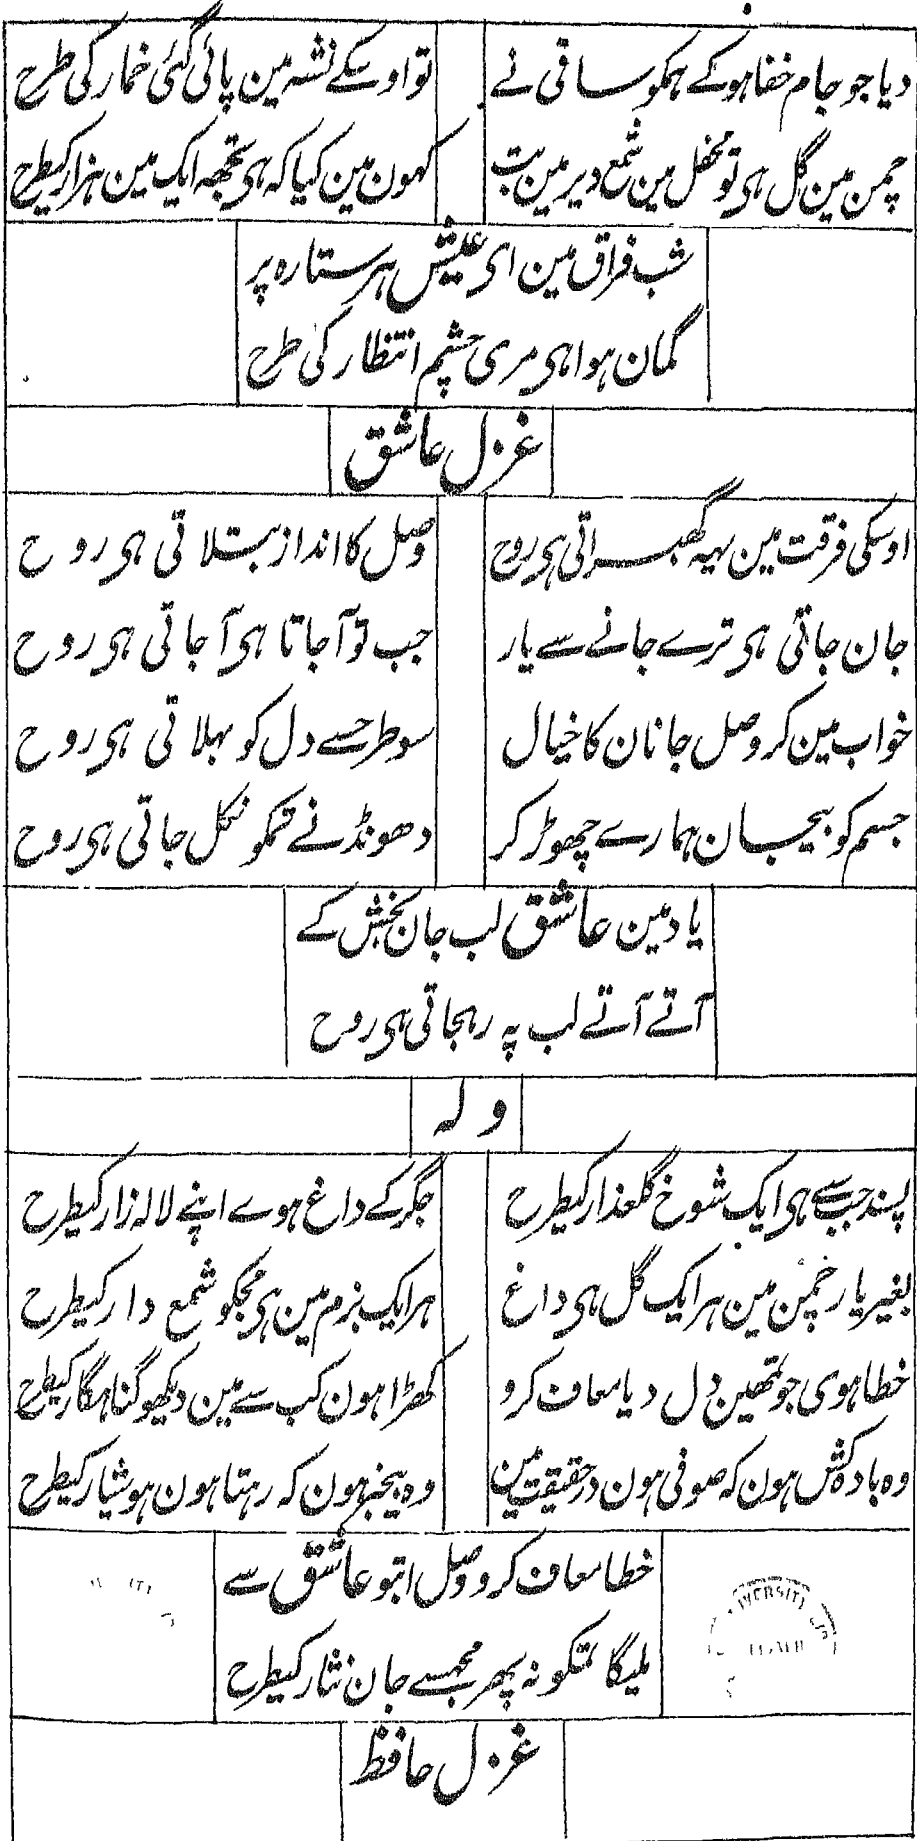 دیا جو جام خفا ہو کے ہمکو ساقی نے تو اوسکے نشہ مین پائی گئی خمار کی طرح
چمن مین گل ہی تو محفل مین شمع دیر مین بت کہون مین کیا کہ ہی تجھہ ایک مین ہزار کیطرح
شب فراق مین ای عیش ہر ستارہ پر
گمان ہوا ہی مری چشم انتظار کی طرح
غزل عاشق
اوسکی فرقت مین یہہ گھبراتی ہی روح وصل کا انداز بتلاتی ہی روح
جان جاتی ہی ترے جانے سے یار جب تو آجاتا ہی آجاتی ہی روح
خواب مین کر وصل جانان کا خیال سو طرحسے دل کو بہلاتی ہی روح
جسم کو بیجان ہمارے چھوڑ کر دھونڈنے تمکو نکل جاتی ہی روح
یاد مین عاشق لب جان بخش کے
آتے آتے لب پہ رہجاتی ہی روح
ولہ
پسند جبسے ہی ایک شوخ گلعذار کیطرح جگر کے داغ ہوے اپنے لالہ زار کیطرح
بغیر یار چمن مین ہر ایک گل ہی داغ ہر ایک بزم مین ہی مجکو شمع دار کیطرح
خطا ہوی جو تمھین دل دیا معاف کرو کھڑا ہون کب سے مین دیکھو گناہگار کیطرح
وہ بادہ کش ہون کہ صوفی ہون در حقیقت مین وہ بیخبر ہون کہ رہتا ہون ہوشیار کیطرح
خطا معاف کرو وصل ابتو عاشق سے
ملیگا تمکو نہ پھر مجہسے جان نثار کیطرح
غزل حافظ